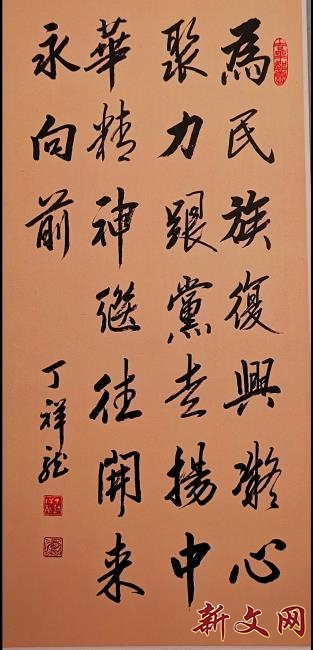 為民族復興凝心
聚力跟黨走揚中
華精神繼往開来
永向前
丁祥龍
新文网